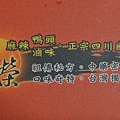 麻辣 鴨頭 滷味 正宗四川
祖傳秘方・中華
口味奇特・台灣獨
榮